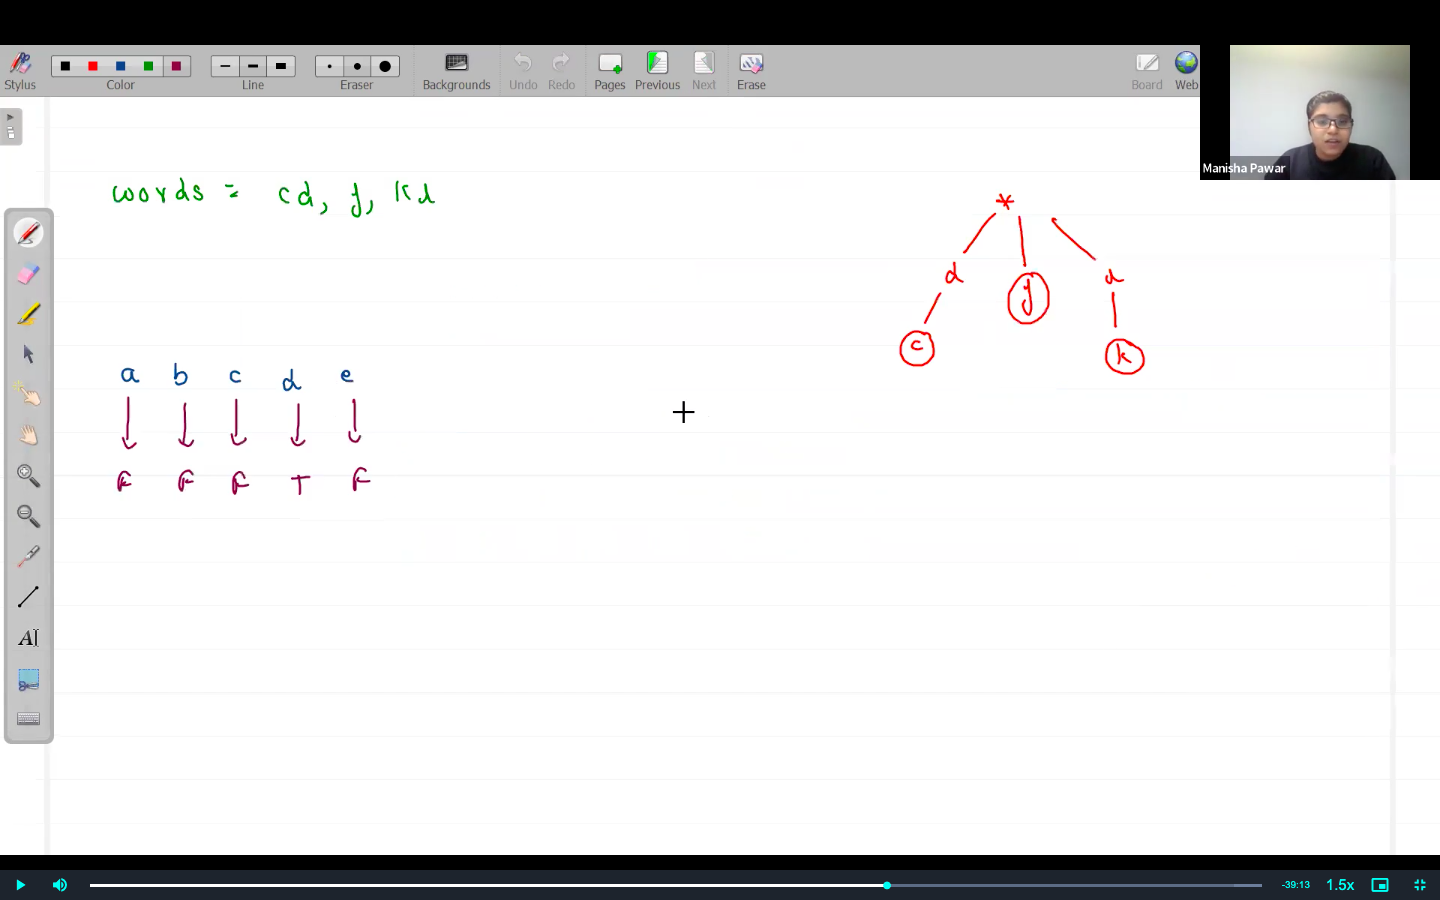 Stylus Color Line Eraser Backgrounds Undo Redo Pages Previous Next Erase Board Web
Manisha Pawar
words = cd, f, kl
*
d f d
c k
a b c d e
F F F T F
AI
-39:13 1.5x